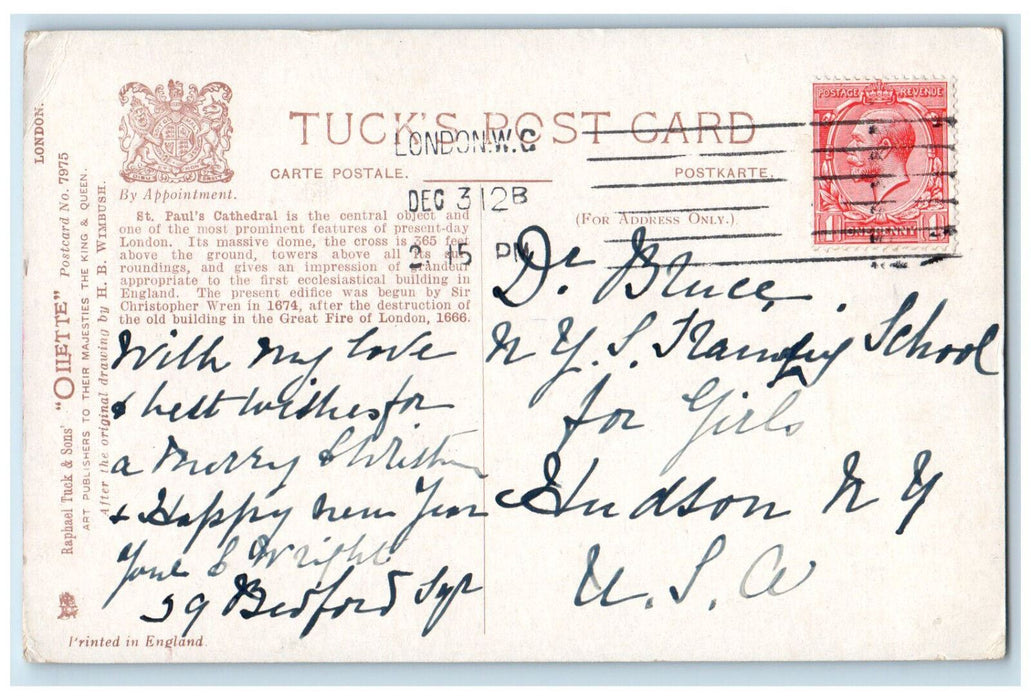 LONDON.
Raphael Tuck & Sons' "OILETTE" Postcard No. 7975
ART PUBLISHERS TO THEIR MAJESTIES THE KING & QUEEN.
After the original drawing by H. B. WIMBUSH.
By Appointment.
TUCK'S POST CARD
CARTE POSTALE.
POSTKARTE.
(FOR ADDRESS ONLY.)
LONDON.W.C
DEC 31 12B
2. 15 PM
POSTAGE REVENUE
1 ONE PENNY 1
St. Paul's Cathedral is the central object and
one of the most prominent features of present-day
London. Its massive dome, the cross is 365 feet
above the ground, towers above all its sur-
roundings, and gives an impression of grandeur
appropriate to the first ecclesiastical building in
England. The present edifice was begun by Sir
Christopher Wren in 1674, after the destruction of
the old building in the Great Fire of London, 1666.
With my love
& best wishes for
a Merry Christmas
& Happy New Year
Jane E Wright
39 Bedford Sqr
Dr Bruce,
N Y. S. Training School
for Girls
Hudson N Y
U. S. A
Printed in England.